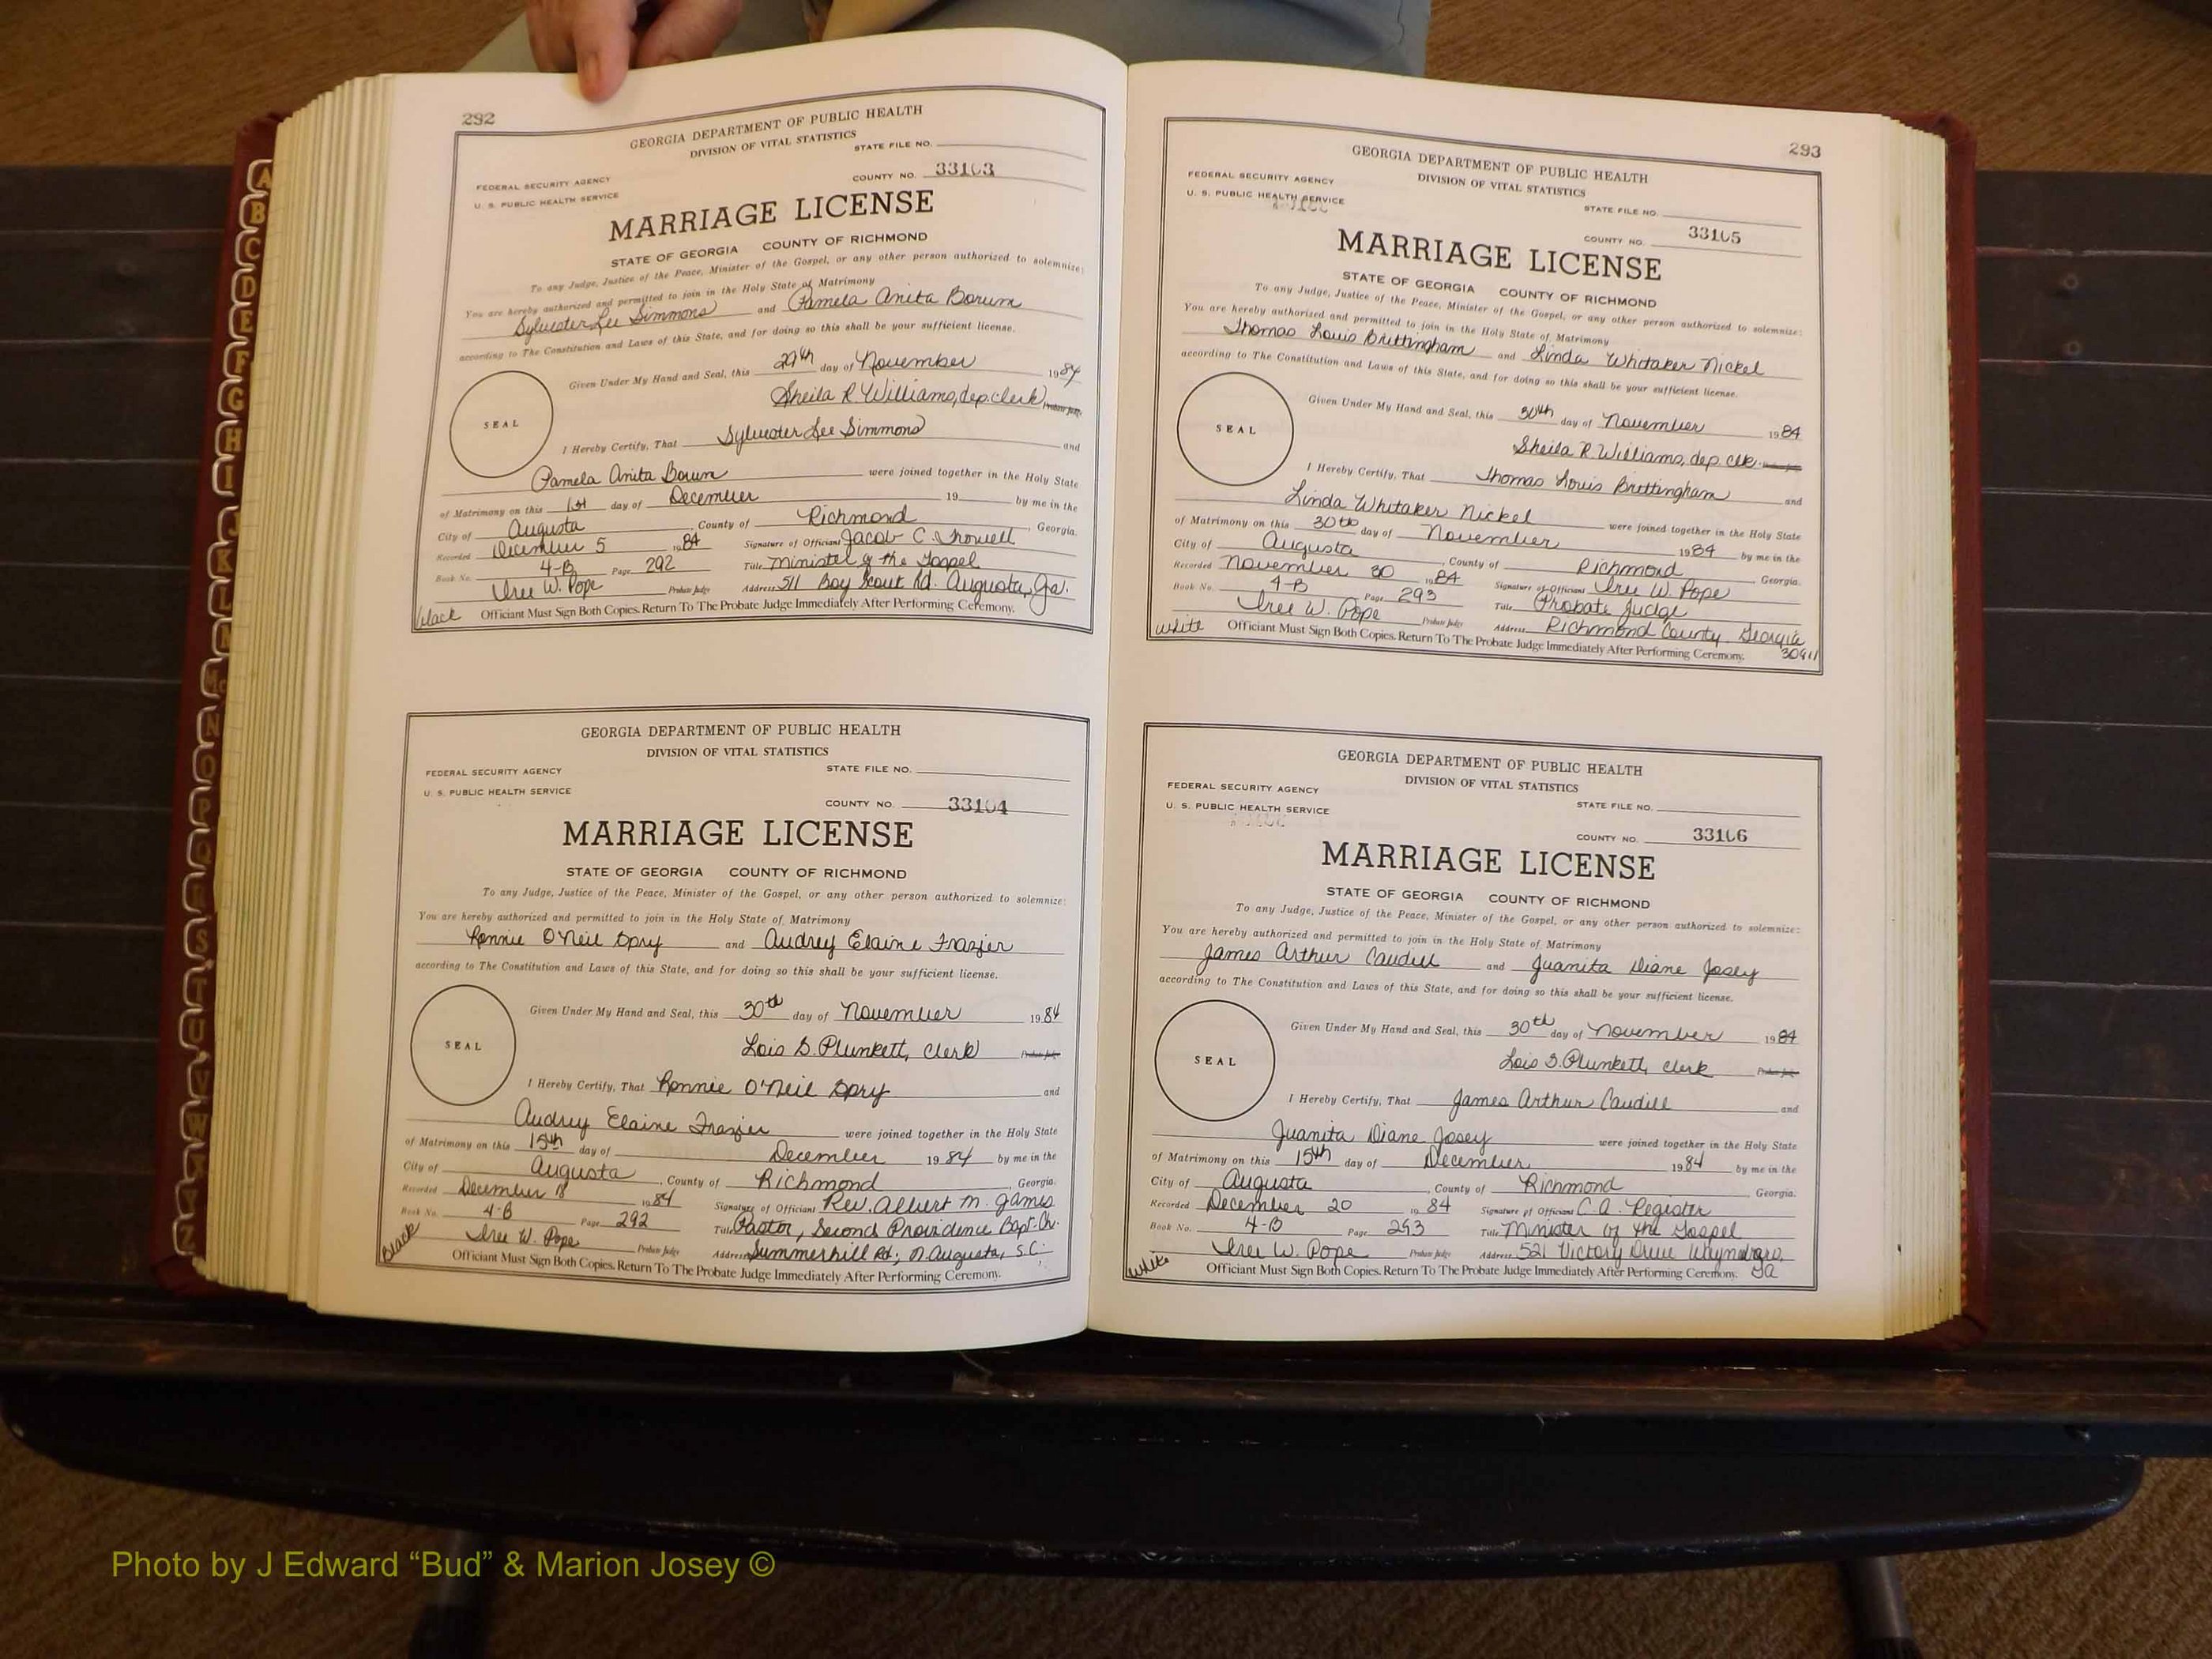 292
GEORGIA DEPARTMENT OF PUBLIC HEALTH
DIVISION OF VITAL STATISTICS
STATE FILE NO.
FEDERAL SECURITY AGENCY
COUNTY NO. 33103
U. S. PUBLIC HEALTH SERVICE
MARRIAGE LICENSE
STATE OF GEORGIA COUNTY OF RICHMOND
To any Judge, Justice of the Peace, Minister of the Gospel, or any other person authorized to solemnize:
You are hereby authorized and permitted to join in the Holy State of Matrimony
Sylvester Lee Simmons and Pamela Anita Borum
according to The Constitution and Laws of this State, and for doing so this shall be your sufficient license.
Given Under My Hand and Seal, this 29th day of November 1984
Sheila R. Williams, dep. clerk Probate Judge
SEAL
I Hereby Certify, That Sylvester Lee Simmons and
Pamela Anita Borum were joined together in the Holy State
of Matrimony on this 1st day of December 19 by me in the
City of Augusta, County of Richmond, Georgia.
Recorded December 5 1984 Signature of Officiant Jacob C.
Book No. 4-B Page 292 Title Minister of the Gospel
Iree W. Pope Probate Judge Address 511 Boy Scout Rd. Augusta, Ga.
black Officiant Must Sign Both Copies. Return To The Probate Judge Immediately After Performing Ceremony.
GEORGIA DEPARTMENT OF PUBLIC HEALTH
DIVISION OF VITAL STATISTICS
FEDERAL SECURITY AGENCY STATE FILE NO.
U. S. PUBLIC HEALTH SERVICE
COUNTY NO. 33104
MARRIAGE LICENSE
STATE OF GEORGIA COUNTY OF RICHMOND
To any Judge, Justice of the Peace, Minister of the Gospel, or any other person authorized to solemnize:
You are hereby authorized and permitted to join in the Holy State of Matrimony
Ronnie O'Neil Spry and Audrey Elaine Frazier
according to The Constitution and Laws of this State, and for doing so this shall be your sufficient license.
Given Under My Hand and Seal, this 30th day of November 1984
SEAL
Lois S. Plunkett, Clerk Probate Judge
I Hereby Certify, That Ronnie O'Neil Spry and
Audrey Elaine Frazier were joined together in the Holy State
of Matrimony on this 15th day of December 1984 by me in the
City of Augusta, County of Richmond, Georgia.
Recorded December 18 1984 Signature of Officiant Rev. Albert M. James
Book No. 4-B Page 292 Title Pastor, Second Providence Bapt. Ch.
Iree W. Pope Probate Judge Address Summerhill Rd; N. Augusta, S.C.
Black Officiant Must Sign Both Copies. Return To The Probate Judge Immediately After Performing Ceremony.
293
GEORGIA DEPARTMENT OF PUBLIC HEALTH
DIVISION OF VITAL STATISTICS
FEDERAL SECURITY AGENCY
U. S. PUBLIC HEALTH SERVICE
STATE FILE NO.
COUNTY NO. 33105
MARRIAGE LICENSE
STATE OF GEORGIA COUNTY OF RICHMOND
To any Judge, Justice of the Peace, Minister of the Gospel, or any other person authorized to solemnize:
You are hereby authorized and permitted to join in the Holy State of Matrimony
Thomas Louis Brittingham and Linda Whitaker Nickel
according to The Constitution and Laws of this State, and for doing so this shall be your sufficient license.
Given Under My Hand and Seal, this 30th day of November 1984
SEAL
Sheila R. Williams, dep clk.
I Hereby Certify, That Thomas Louis Brittingham and
Linda Whitaker Nickel were joined together in the Holy State
of Matrimony on this 30th day of November 1984 by me in the
City of Augusta, County of Richmond, Georgia.
Recorded November 30 1984 Signature of Officiant Iree W. Pope
Book No. 4-B Page 293 Title Probate Judge
Iree W. Pope Probate Judge Address Richmond County, Georgia
30911
white Officiant Must Sign Both Copies. Return To The Probate Judge Immediately After Performing Ceremony.
GEORGIA DEPARTMENT OF PUBLIC HEALTH
DIVISION OF VITAL STATISTICS
FEDERAL SECURITY AGENCY
U. S. PUBLIC HEALTH SERVICE
STATE FILE NO.
COUNTY NO. 33106
MARRIAGE LICENSE
STATE OF GEORGIA COUNTY OF RICHMOND
To any Judge, Justice of the Peace, Minister of the Gospel, or any other person authorized to solemnize:
You are hereby authorized and permitted to join in the Holy State of Matrimony
James Arthur Caudill and Juanita Diane Josey
according to The Constitution and Laws of this State, and for doing so this shall be your sufficient license.
Given Under My Hand and Seal, this 30th day of November 1984
SEAL
Lois S. Plunkett, Clerk Probate Judge
I Hereby Certify, That James Arthur Caudill and
Juanita Diane Josey were joined together in the Holy State
of Matrimony on this 15th day of December 1984 by me in the
City of Augusta, County of Richmond Georgia.
Recorded December 20 1984 Signature of Officiant C. A. Register
Book No. 4-B Page 293 Title Minister of the Gospel
Iree W. Pope Probate Judge Address 521 Victory Drive Waynesboro,
Ga
white Officiant Must Sign Both Copies. Return To The Probate Judge Immediately After Performing Ceremony.
A
B
C
D
E
F
G
H
I
J
K
L
M
Mc
N
O
P
Q
R
S
T
U
V
W
Y
Z
Photo by J Edward “Bud” & Marion Josey ©